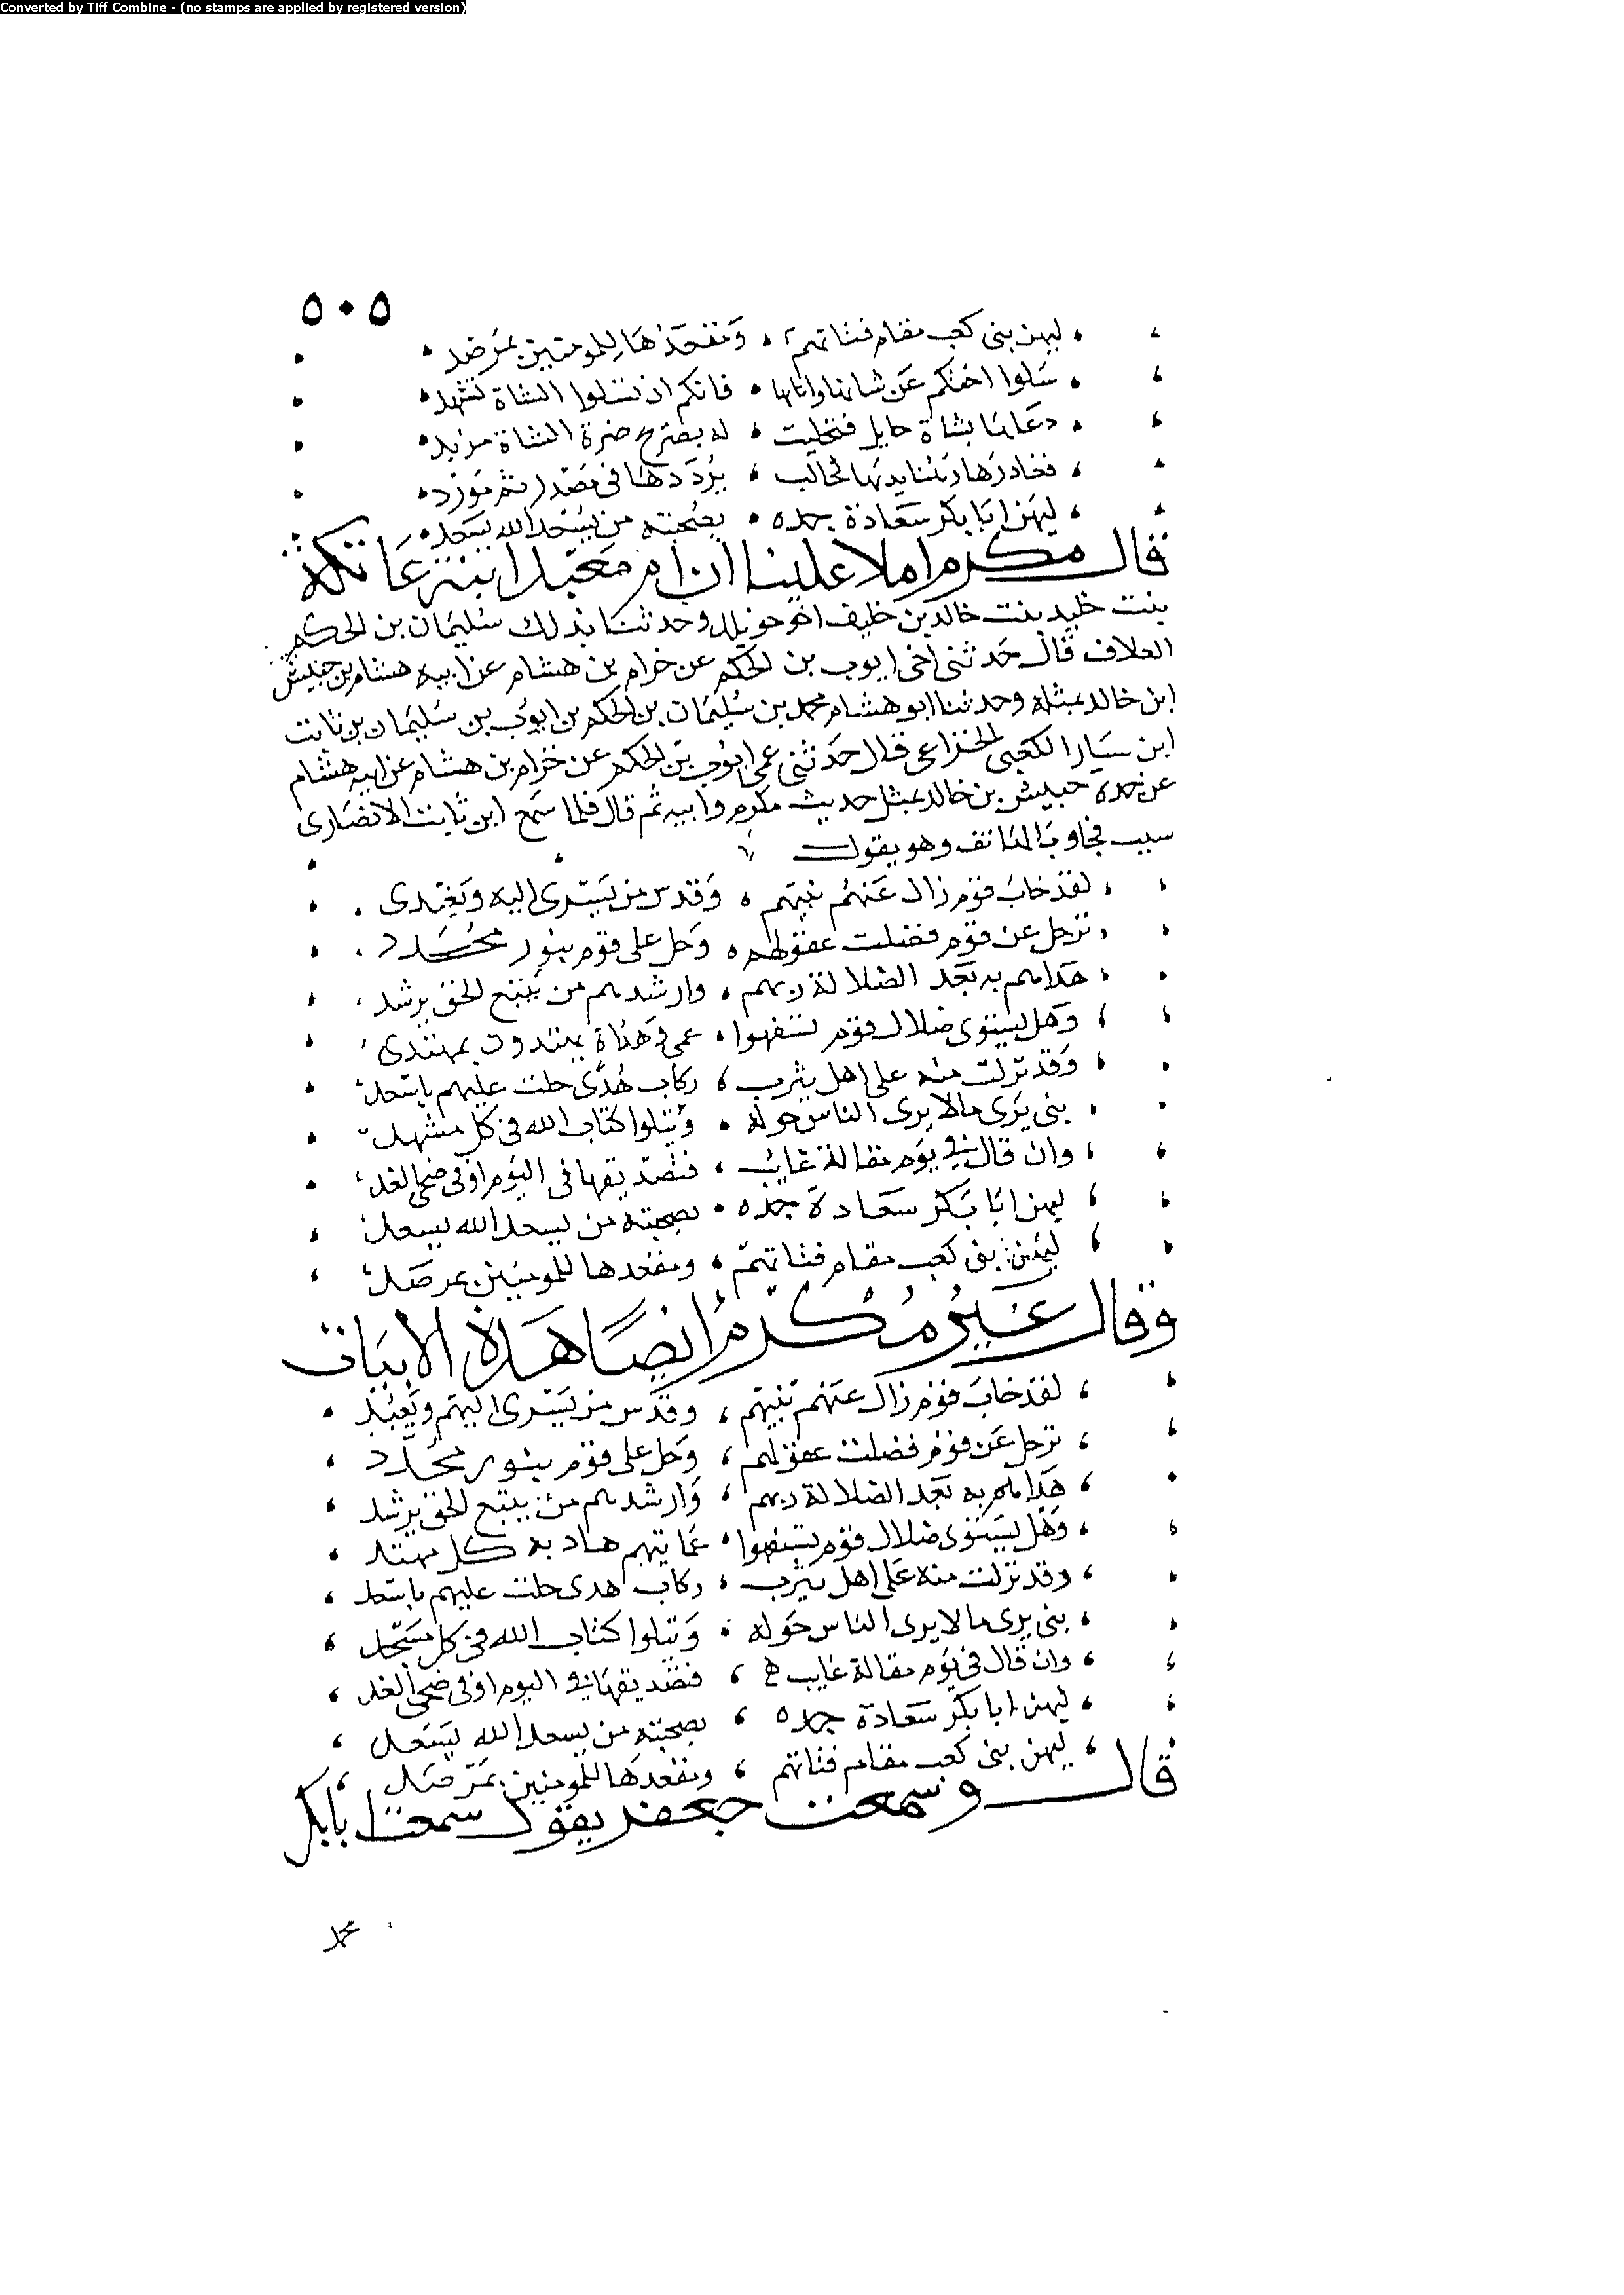 Converted by Tiff Combine - (no stamps are applied by registered version)
٥٠٥
ليهن بنى كعب مقام فتاتهم ، ومقعدها للمومنين بمرصد
سلوا اختكم عن شاتها وانائها ، فانكم ان تسلوا الشاة تشهد
دعاها بشاة حايل فتحلبت ، له بصريح ضرة الشاة مزبد
فغادرها رهنا لديها لحالب ، يرددها فى مصدر ثم مورد
ليهن ابا بكر سعادة جده ، بصحبته من يسعد الله يسعد
قال مكرم املا علينا ان ام معبد ابنة عاتكة
بنت خليد بنت خالد بن خليف اخو حويلد وحدثنا بذلك سليمان بن الحكم
العلاف قال حدثنى اخى ايوب بن الحكم عن حزام بن هشام عن ابيه هشام بن حبيش
ابن خالد بمثله وحدثنا ابو هشام محمد بن سليمان بن الحكم بن ايوب بن سليمان بن ثابت
ابن سيار الكعبى الخزاعى قال حدثنى عمى ايوب بن الحكم عن حزام بن هشام عن ابيه هشام
عن جده حبيش بن خالد بمثل حديث مكرم وابيه ثم قال فلما سمع ابن ثابت الانصارى
سبب فجاوب الهاتف وهو يقول
لقد خاب قوم زال عنهم نبيهم ، وقدس من يسرى اليه ويغتدى
ترحل عن قوم فضلت عقولهم ، وحل على قوم بنور مجدد
هداهم به بعد الضلالة ربهم ، وارشدهم من يتبع الحق يرشد
وهل يستوى ضلال قوم تسفهوا ، عمى هداة يهتدون بمهتدى
وقد نزلت منه على اهل يثرب ، ركاب هدى حلت عليهم باسعد
نبى يرى مالا يرى الناس حوله ، ويتلوا كتاب الله فى كل مشهد
وان قال فى يوم مقالة غايب ، فتصديقها فى اليوم او فى ضحى الغد
ليهن ابا بكر سعادة جده ، بصحبته من يسعد الله يسعد
ليهن بنى كعب مقام فتاتهم ، ومقعدها للمومنين بمرصد
وقال غير مكرم ايضا هذه الابيات
لقد خاب قوم زال عنهم نبيهم ، وقدس من يسرى اليهم
ترحل عن قوم فضلت عقولهم ، وحل على قوم بنور مجدد
هداهم به بعد الضلالة ربهم ، وارشدهم من يتبع الحق يرشد
وهل يستوى ضلال قوم تسفهوا ، عمايتهم هاد به كل مهتد
وقد نزلت منه على اهل يثرب ، ركاب هدى حلت عليهم باسعد
نبى يرى مالا يرى الناس حوله ، ويتلوا كتاب الله فى كل مسجد
وان قال فى يوم مقالة غايب ، فتصديقها فى اليوم او فى ضحى الغد
ليهن ابا بكر سعادة جده ، بصحبته من يسعد الله يسعد
ليهن بنى كعب مقام فتاتهم ، ومقعدها للمومنين بمرصد
قال وسمعت جعفر يقول سمعت ابا بكر
محمد